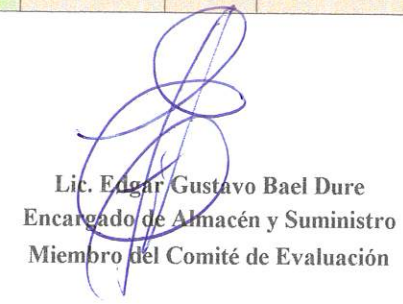 Lic. Edgar Gustavo Bael Dure
Encargado de Almacén y Suministro
Miembro del Comité de Evaluación